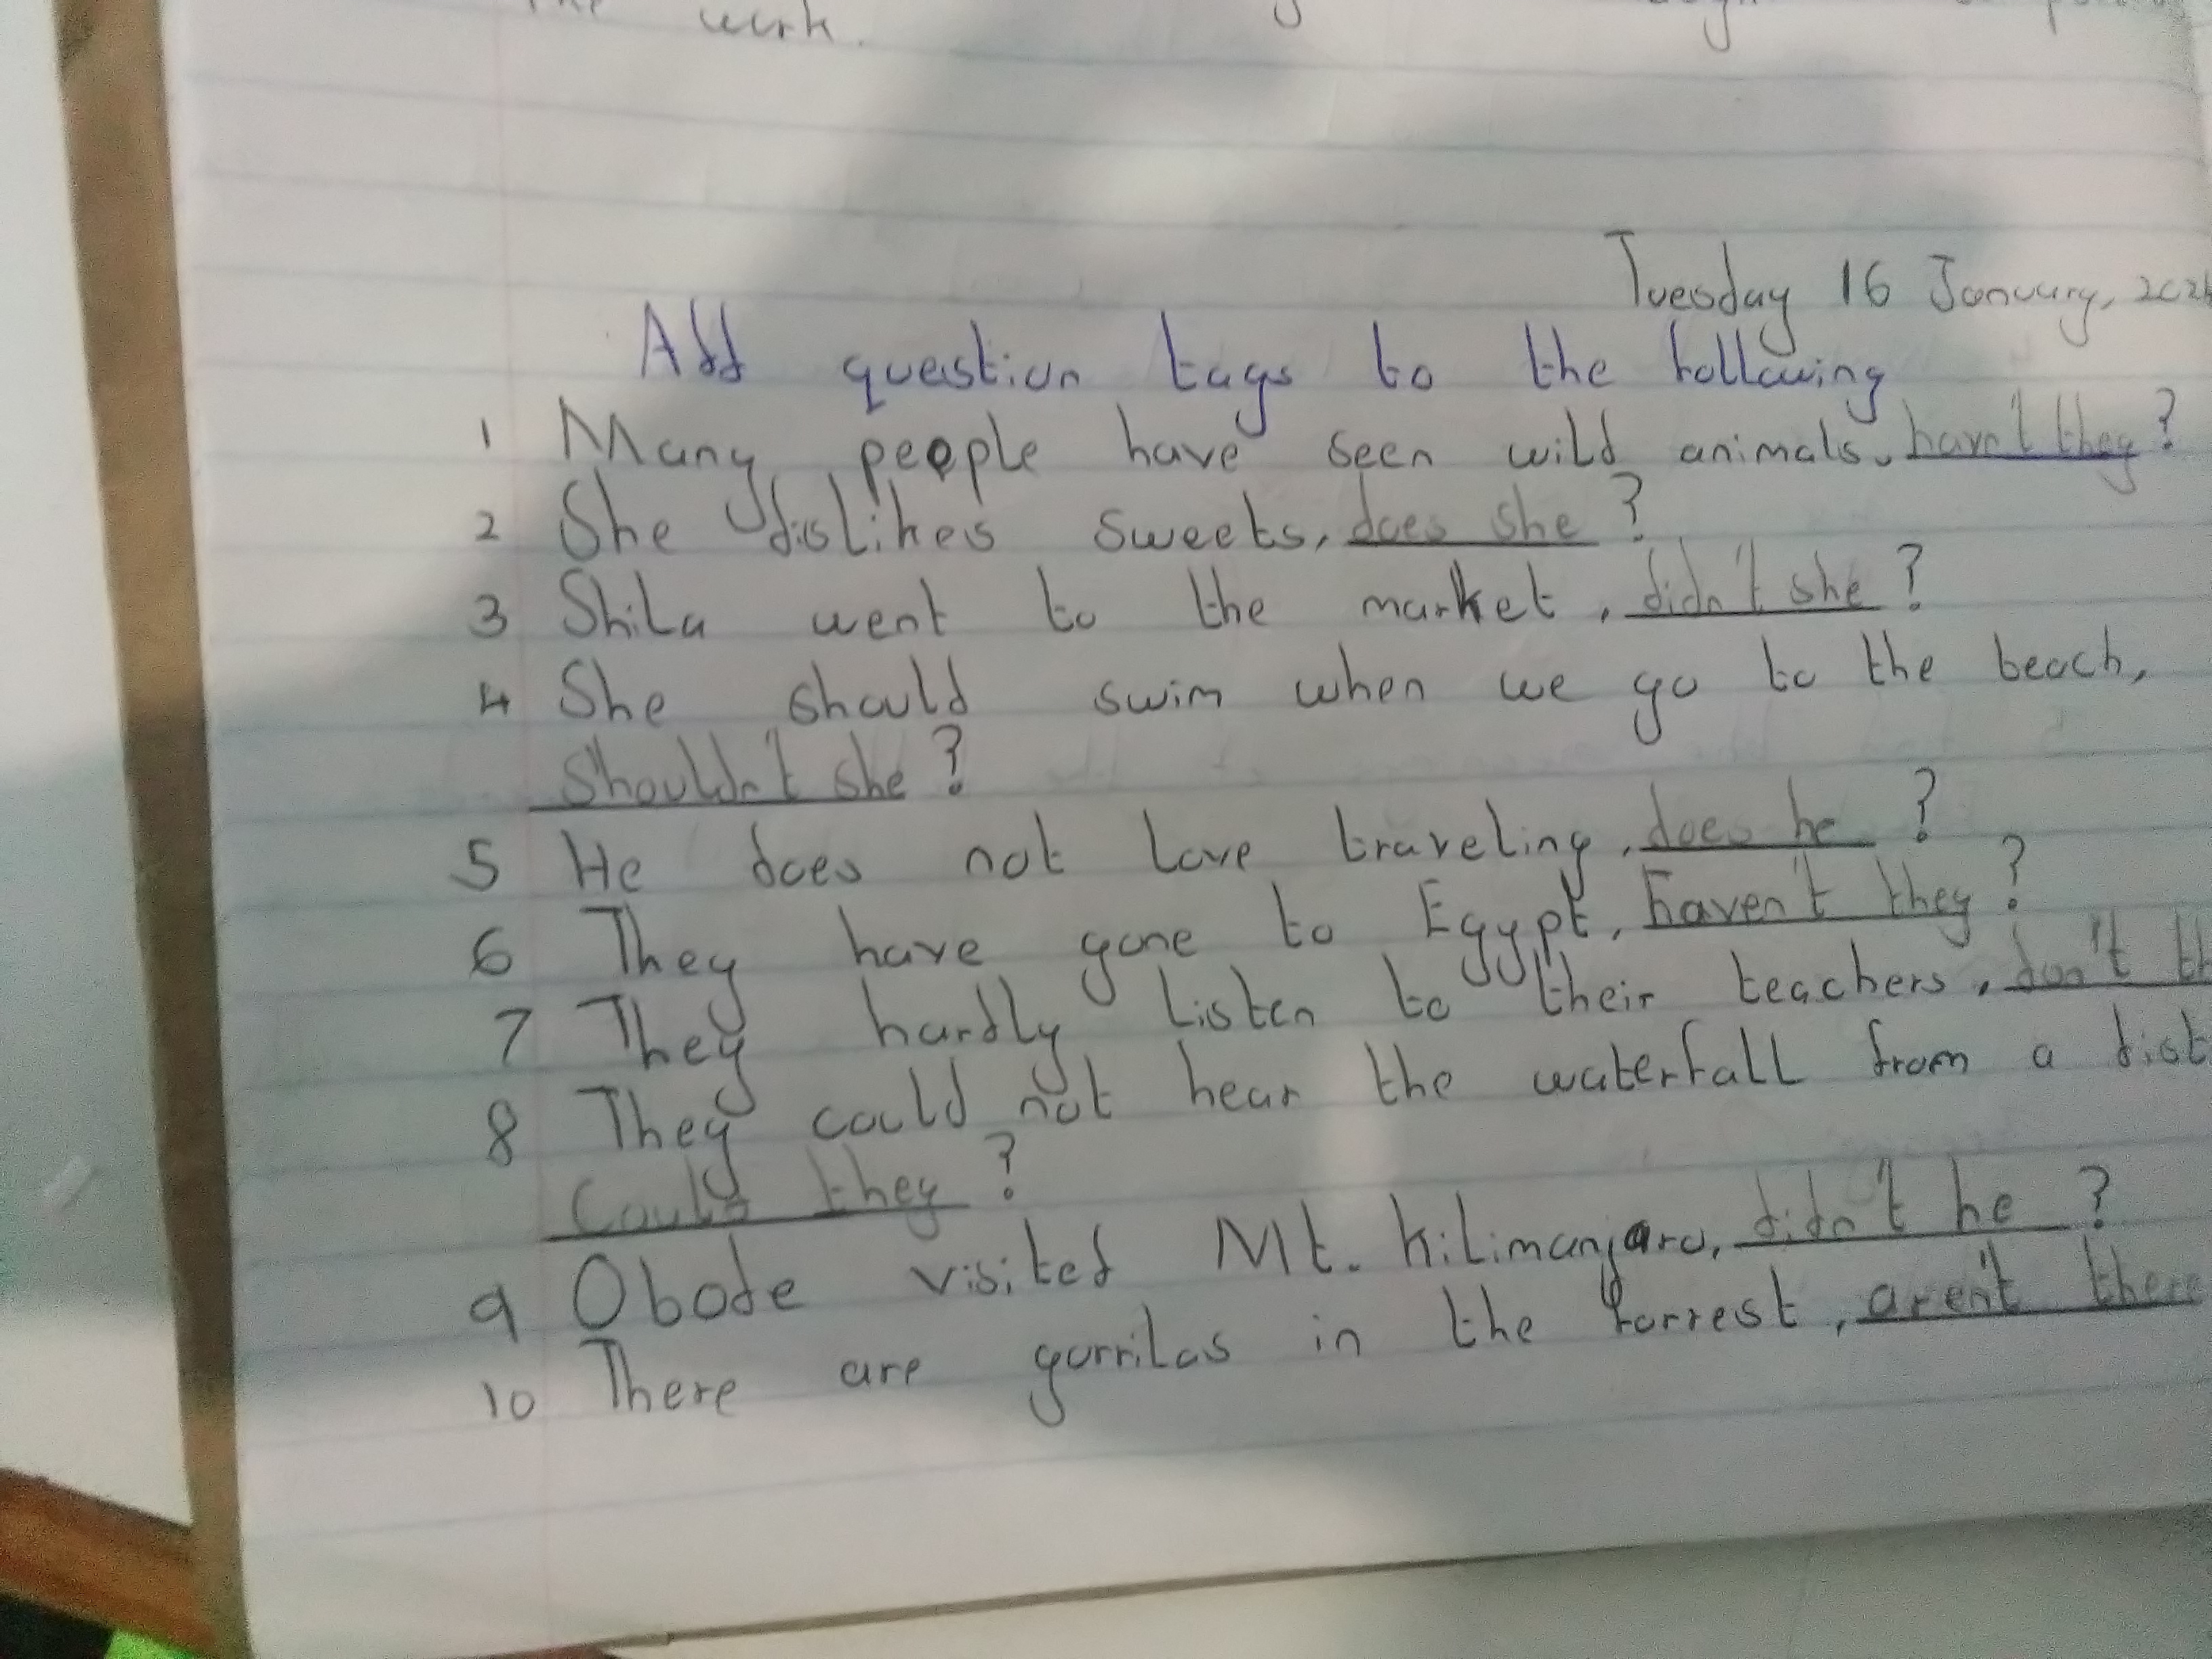 the work.
Tuesday 16 January, 202
Add question tags to the following
1 Many people have seen wild animals, havn't they?
2 She dislikes sweets, does she?
3 Shila went to the market, didn't she?
4 She should swim when we go to the beach,
Shouldn't she?
5 He does not love traveling, does he?
6 They have gone to Egypt, haven't they?
7 They hardly listen to their teachers, don't th
8 They could not hear the waterfall from a dist
Could they?
9 Obode visited Mt. Kilimanjaro, didn't he?
10 There are gorrilas in the forrest, aren't there